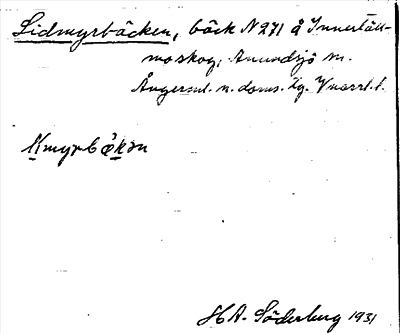 Lidmyrbäcken, bäck N 271 å Innertäll-
mo skog, Anundsjö sn.
Ångerml. n. doms. tg. Vnorrl. l.
limyrbä̀kən
H A. Söderberg 1931